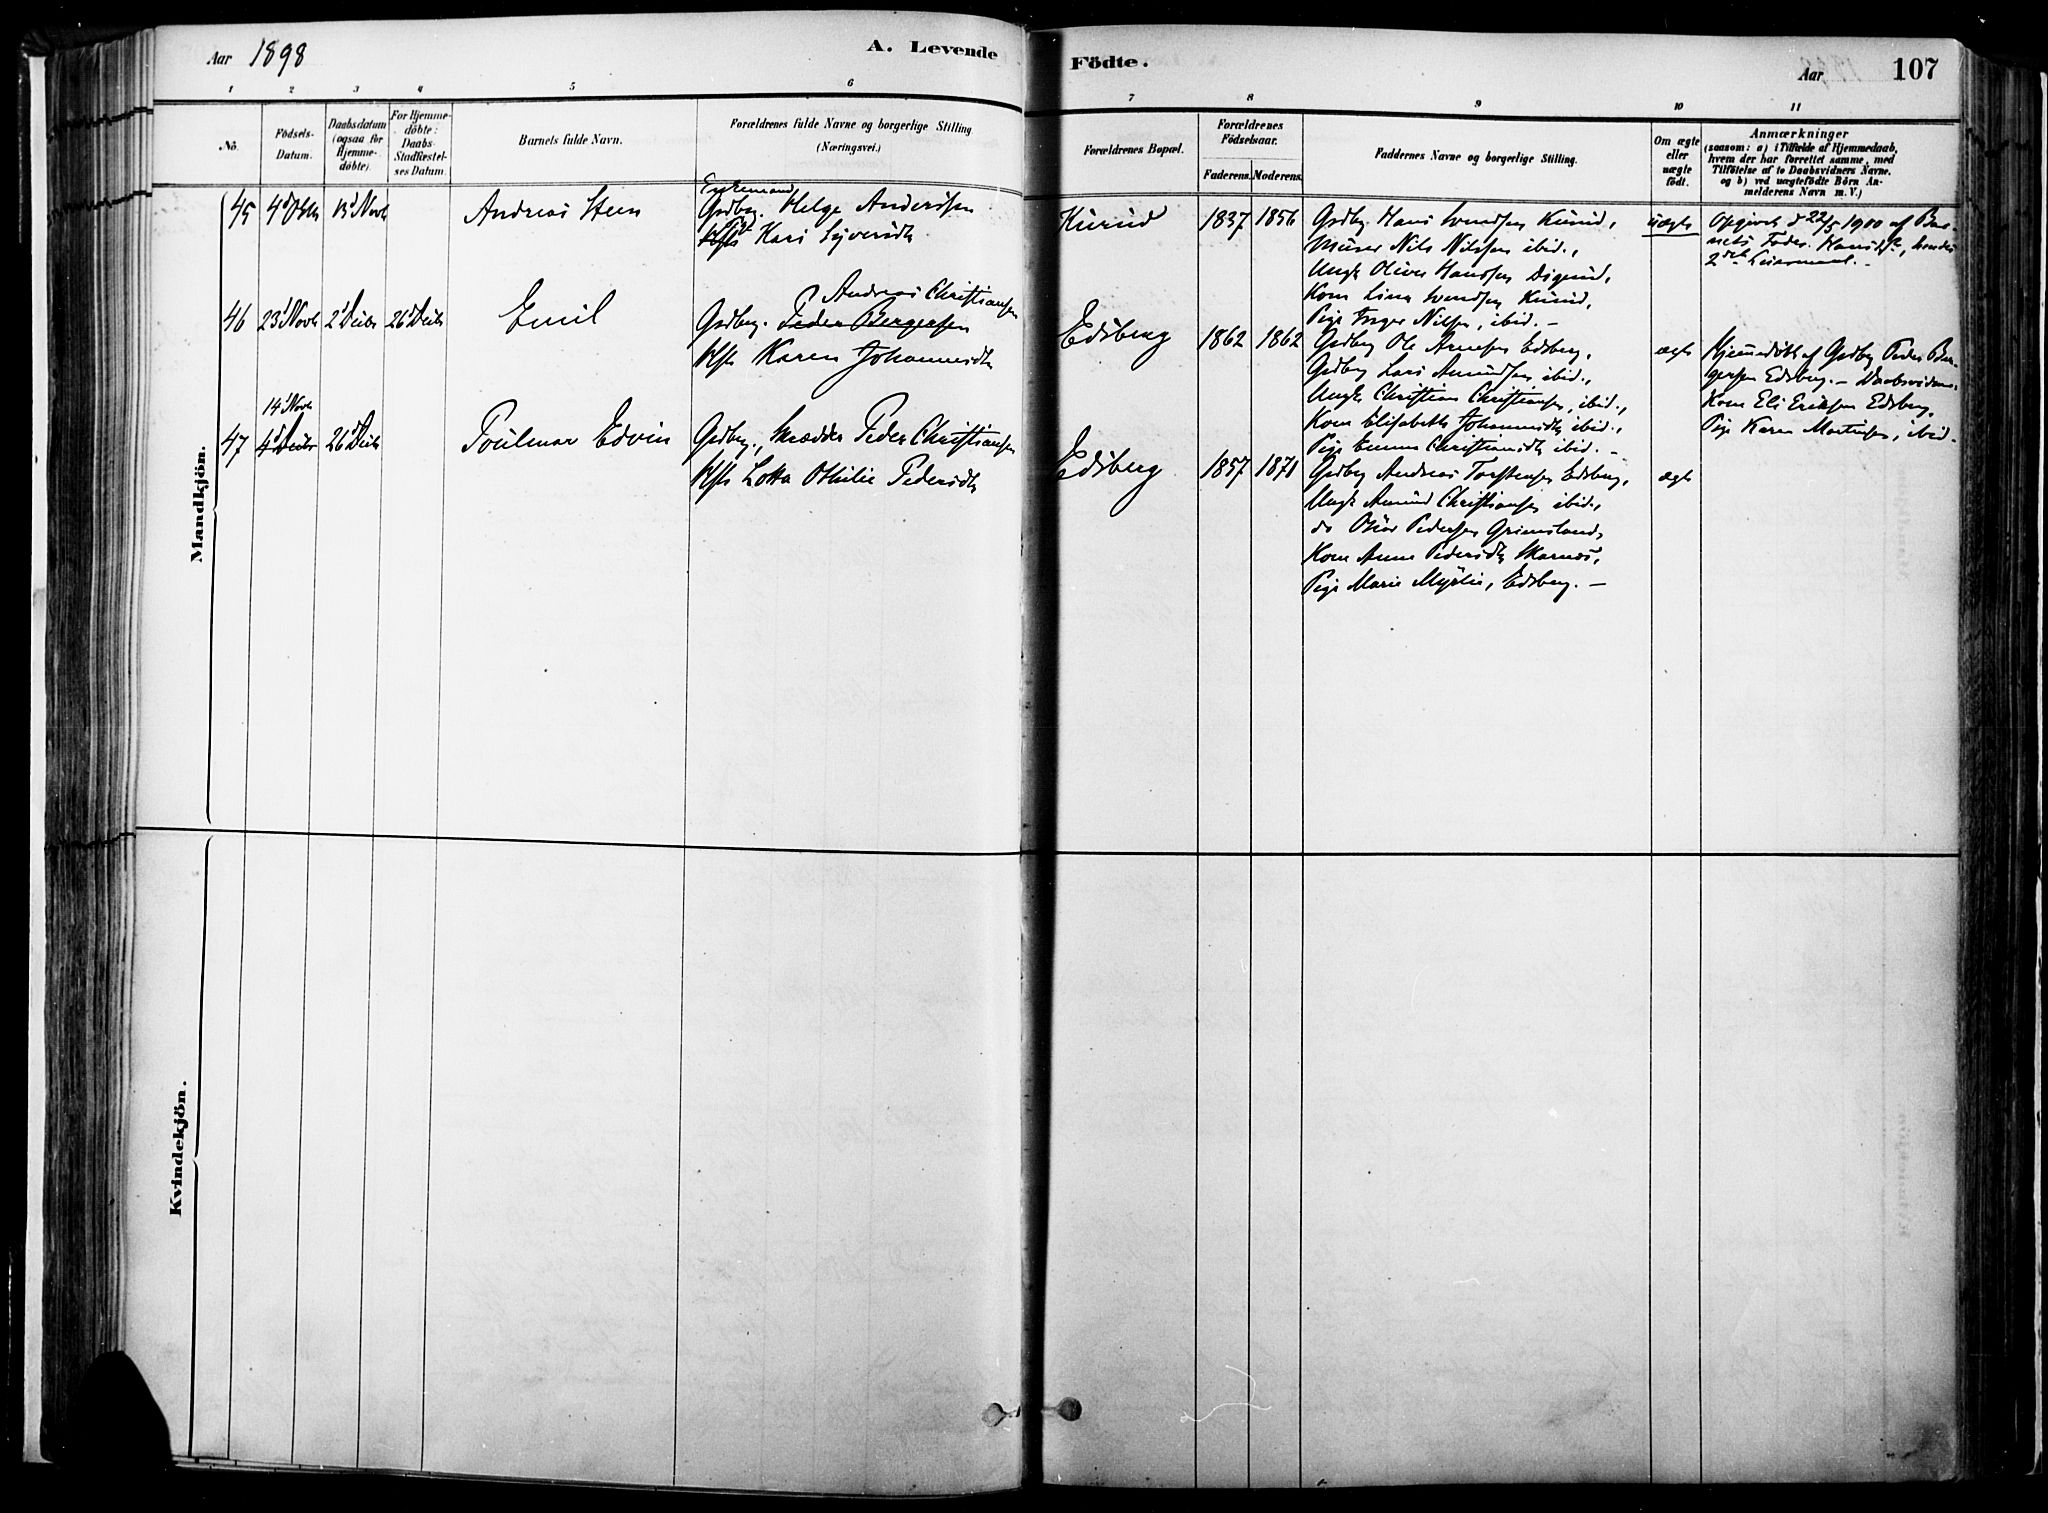 Aar 1898
A. Levende
Födte.
Aar
107
1
2
3
4
5
6
7
8
9
10
11
No.
Födsels-
Datum.
Daabsdatum
(ogsaa for
Hjemme-
döbte).
For Hjemme-
döbte:
Daabs-
Stadfæstel-
ses Datum.
Barnets fulde Navn.
Forældrenes fulde Navne og borgerlige Stilling
(Næringsvei.)
Forældrenes Bopæl.
Forældrenes
Födselsaar.
Faderens.
Moderens.
Faddernes Navne og borgerlige Stilling.
Om ægte
eller
uægte
födt.
Anmærkninger
(saasom: a) i Tilfælde af Hjemmedaab,
hvem der har forrettet samme, med
Tilföielse af to Daabsvidners Navne,
og b) ved uægtefödte Börn An-
melderens Navn m. V.)
Mandkjön.
45
4d Oktb
13d Novb
Andreas Steen
Enkemand
Gbrbg. Helge Anderssen
Kari Syversdtr
Kurud
1837
1856
Gdbg Hans Svendsen Kurud,
Murer Nils Nilssen ibid.,
Ungk Oliver Hanssen Digerud,
Kone Lina Svendsen Kurud,
Pige Inger Nilsen, ibid. –
uægte
Opgivet d 22/5 1900 af Bar-
nets Fader.
2det Leiermaal. –
46
23d Novb
2d Decbr
26d Decbr
Emil
Andreas Christiansen
Gbrbg. Peder Bergersen
Hst Karen Johannesdtr
Edsberg
1862
1862
Gbrbg Ole Arnesen Edsberg,
Gbrbg Lars Amundsen ibid.,
Ungk Christian Christiansen, ibid.,
Kone Elisabeth Johannesdtr ibid.,
Pige Emma Christiansdtr ibid. –
ægte
Hjemmedöbt af Gbrbg Peder Ber-
gersen Edsberg. –
Kone Eli Eriksen Edsberg,
Pige Karen Martinsen, ibid.
47
14d Novb
4d Decbr
26d Decbr
Poulmar Edvin
Gbrbg., Skrædder Peder Christiansen
Hst Lotta Othilie Pedersdtr
Edsberg
1857
1871
Gbrbg Andreas Torstensen Edsberg,
Ungk Amund Christiansen ibid.,
do Oskar Pedersen Grimsland,
Kone Anne Pedersdtr Skarnes,
Pige Marie Myrlie, Edsberg. –
ægte
Kvindekjön.